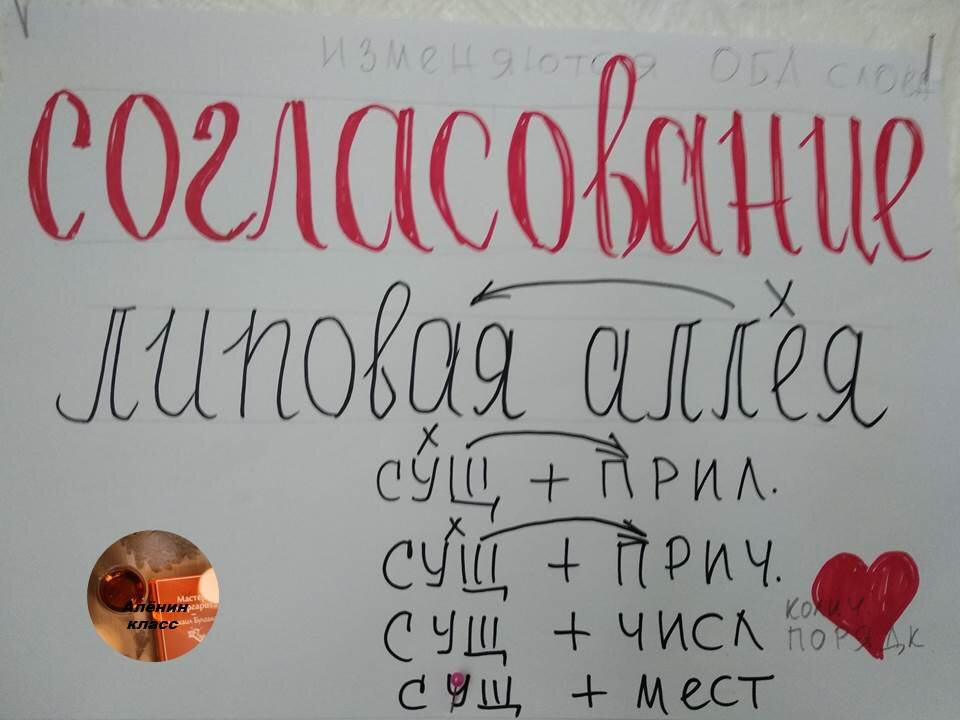 изменяются ОБА слова
согласование
липовая аллея
х
х
сущ + прил.
х
сущ + прич.
сущ + числ колич. порядк
сущ + мест
Алёнин класс
Мастер
Маргарита
Булгаков